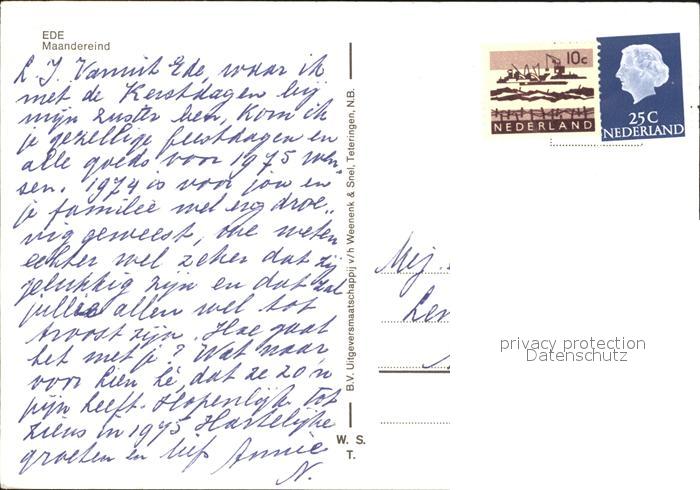 EDE
Maandereind
L. I. Vanuit Ede, waar ik
met de Kerstdagen bij
mijn zuster ben, kom ik
je gezellige feestdagen en
alle goeds voor 1975 wen
sen. 1974 is voor jou en
je familie wel erg droe„
vig geweest, we weten
echter wel zeker dat zij
gelukkig zijn en dat zal
jullie allen wel tot
troost zijn. Hoe gaat
het met je? Wat naar
voor Lien hè, dat ze zo'n
pijn heeft. Hopenlijk tot
ziens in 1975 Hartelijke
groeten en liefs Annie
N.
B.V. Uitgeversmaatschappij v/h Weenenk & Snel, Teteringen, N.B.
W. S.
T.
10c
NEDERLAND
25 C
NEDERLAND
Mej.
privacy protection
Datenschutz